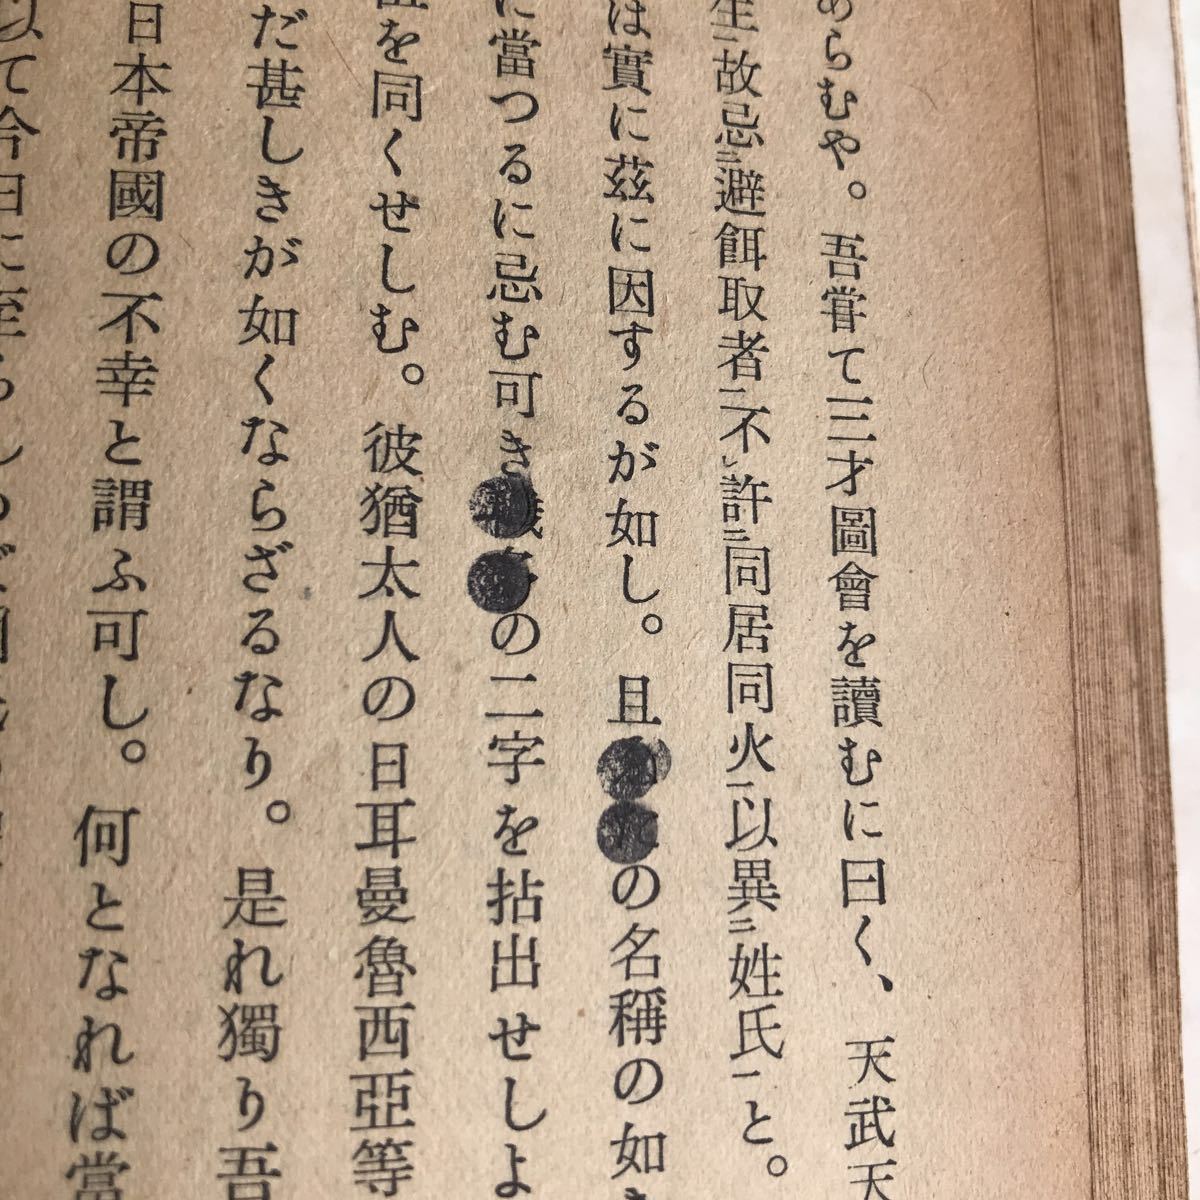 あらむや。吾甞て三才圖會を讀むに曰く、天武天
生ニ故忌ニ避餌取者ニ不レ許ニ同居同火ニ以異ニ姓氏一と。
は實に茲に因するが如し。且の名稱の如き
に當つるに忌む可きの二字を拈出せしよ
を同くせしむ。彼猶太人の日耳曼魯西亞等
だ甚しきが如くならざるなり。是れ獨り吾
日本帝國の不幸と謂ふ可し。何となれば當
て今日に至らしめ